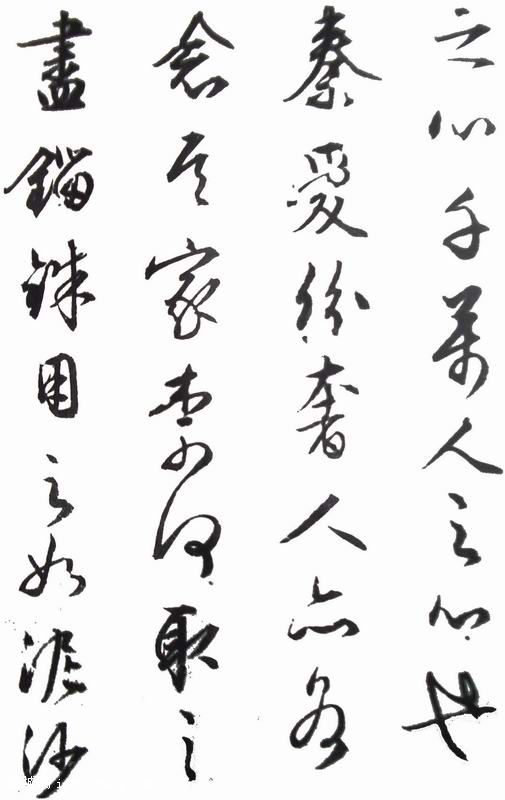 之心千萬人之心也
秦愛紛奢人亦各
念其家柰何取之
盡錙銖用之如泥沙